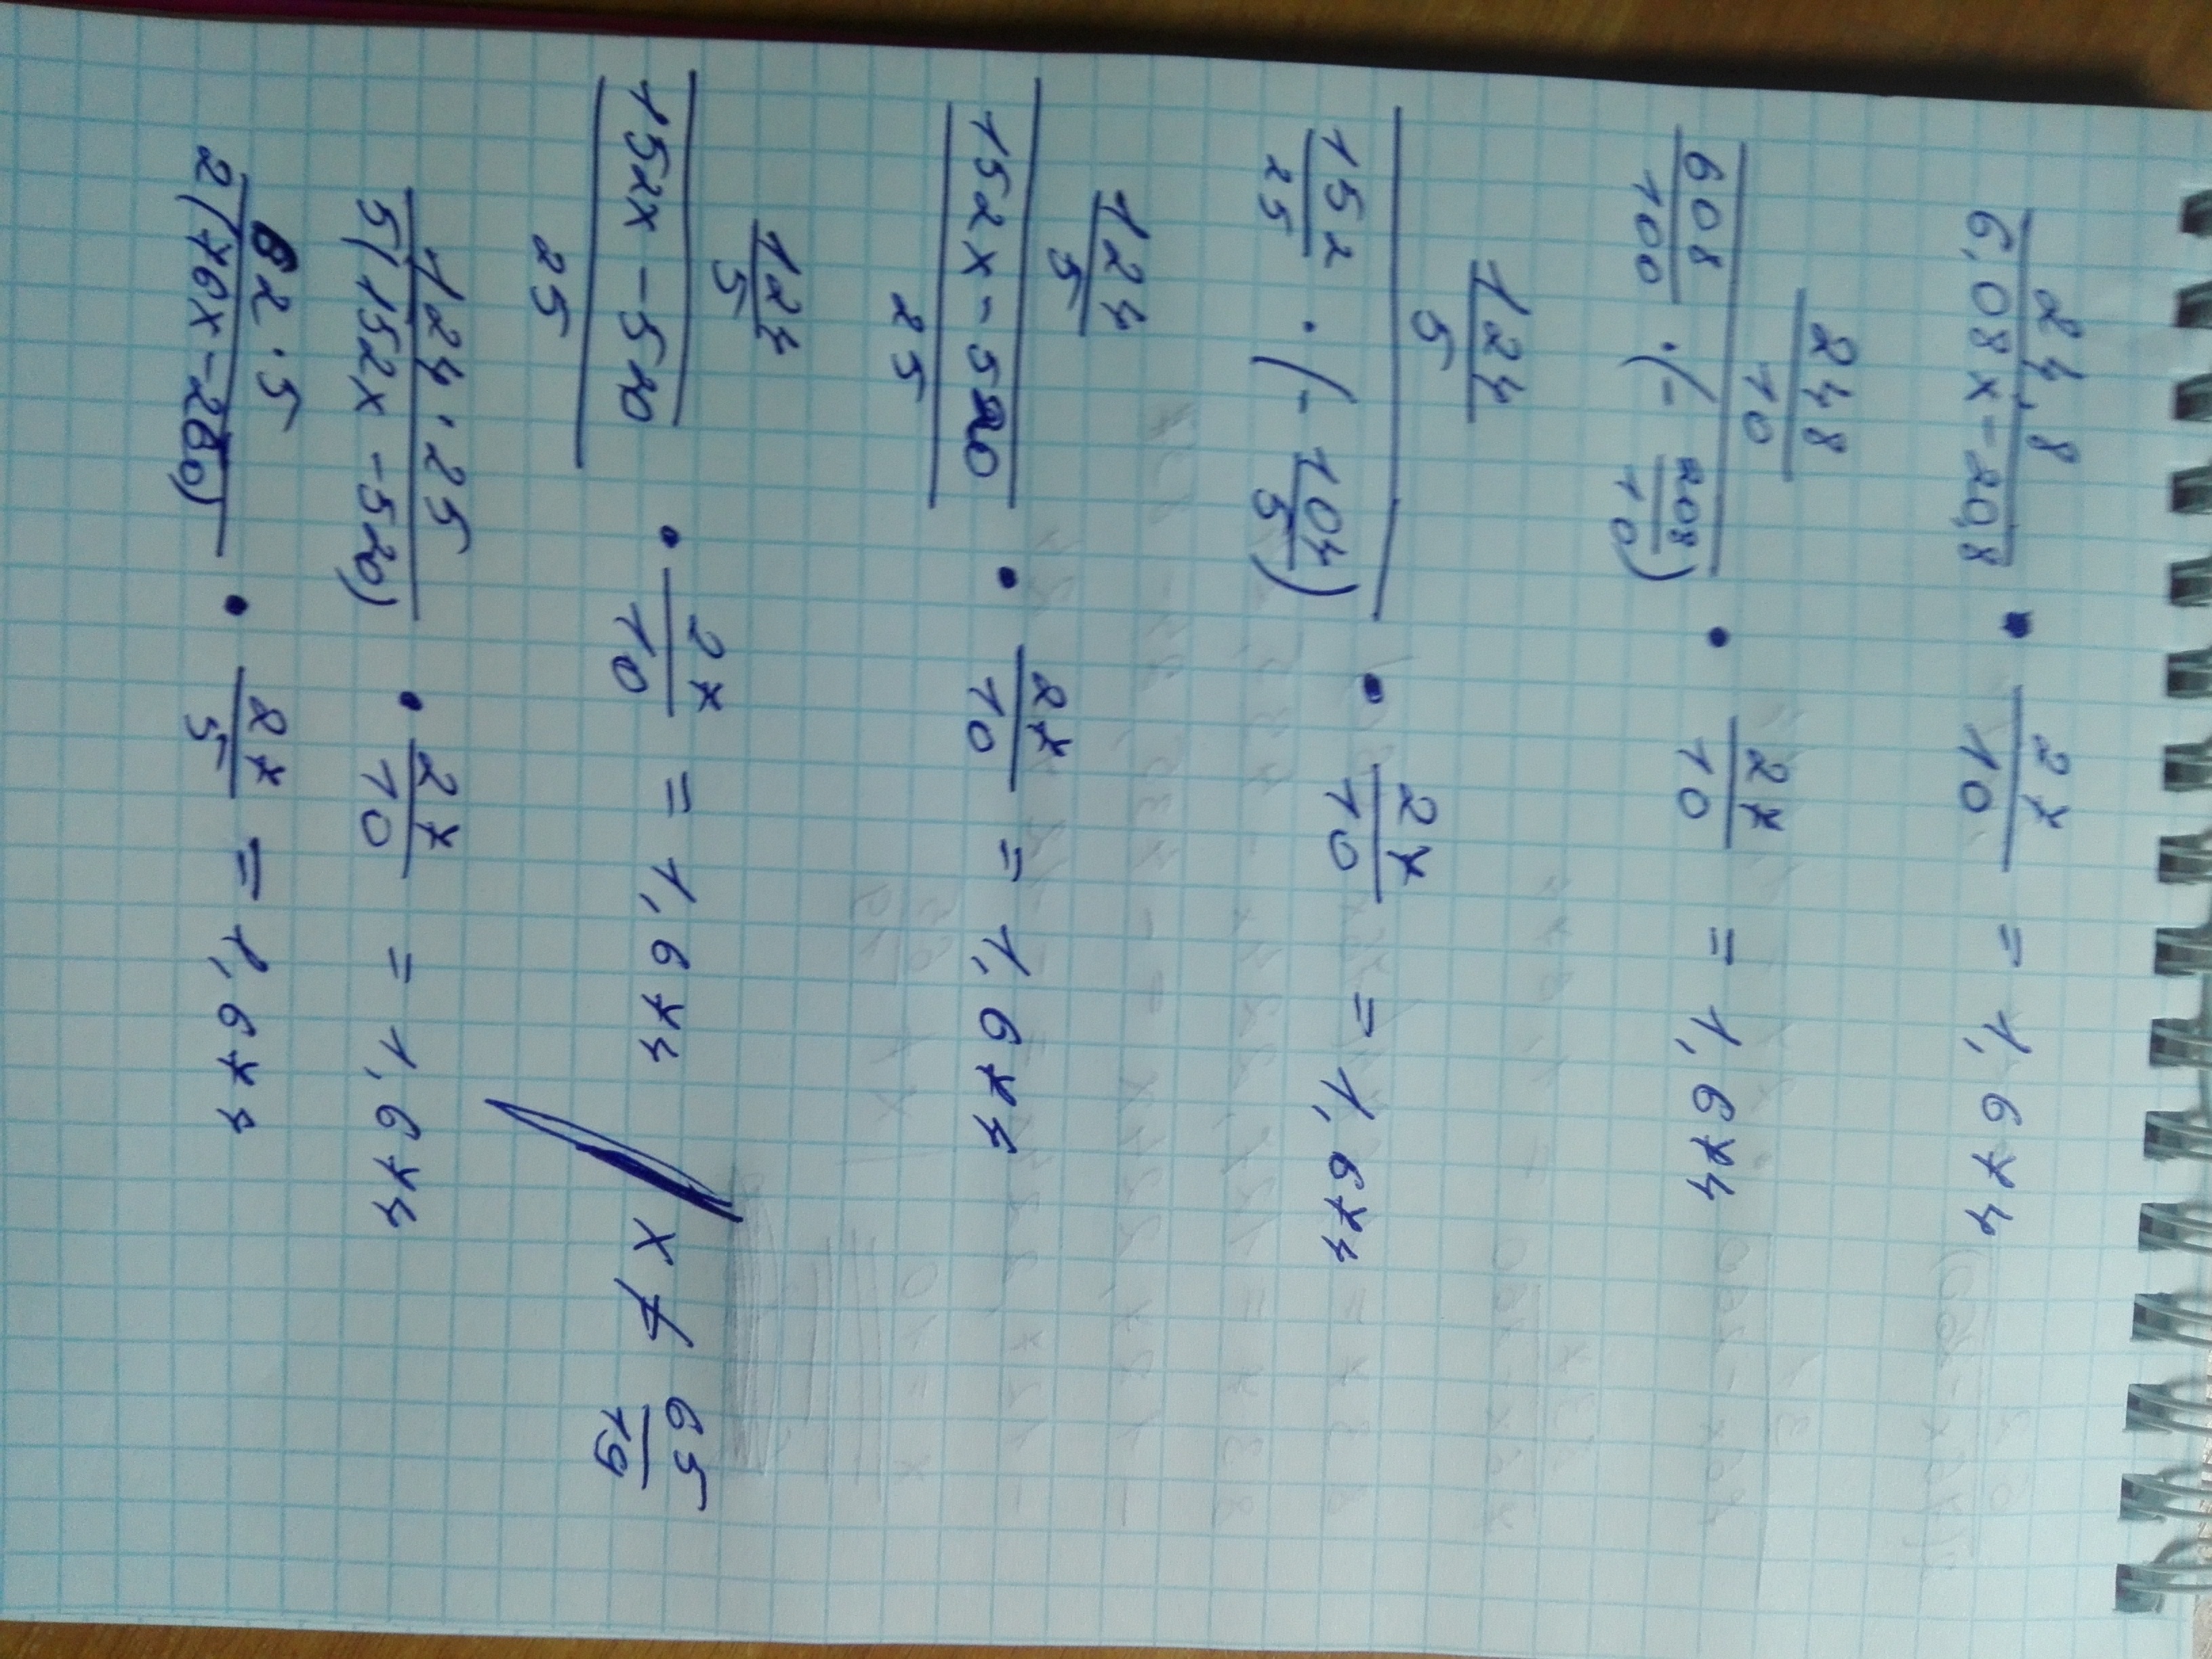 24,8/(6,08x-20,8) · 27/10 = 1,674
(248/10)/(608/100 · (-208/10)) · 27/10 = 1,674
(124/5)/(152/25 · (-104/5)) · 27/10 = 1,674
(124/5)/((152x-520)/25) · 27/10 = 1,674
(124/5)/((152x-520)/25) · 27/10 = 1,674 x ≠ 65/19
124·25/5(152x-520) · 27/10 = 1,674
62·5/2(76x-260) · 27/5 = 1,674